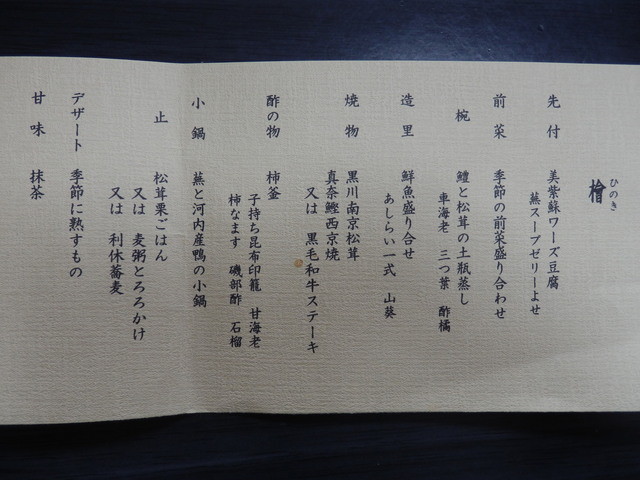 檜 ひのき
先付 美紫蘇ワーズ豆腐
蕪スープゼリーよせ
前菜 季節の前菜盛り合わせ
椀 鱧と松茸の土瓶蒸し
車海老 三つ葉 酢橘
造里 鮮魚盛り合せ
あしらい一式 山葵
焼物 黒川南京松茸
真奈鰹西京焼
又は 黒毛和牛ステーキ
酢の物 柿釜
子持ち昆布印籠 甘海老
柿なます 磯部酢 石榴
小鍋 蕪と河内産鴨の小鍋
止 松茸栗ごはん
又は 麦粥とろろかけ
又は 利休蕎麦
デザート 季節に熟すもの
甘味 抹茶